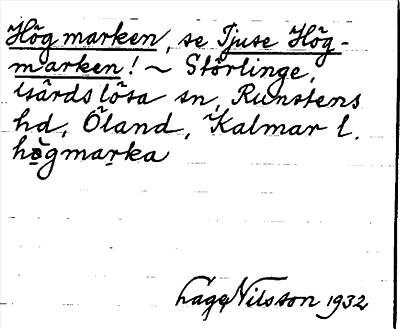 Högmarken, se Tjuse Hög-
marken! ~ Störlinge,
Gärdslösa sn, Runstens
hd, Öland, Kalmar l.
högmarka
Lage Nilsson 1932